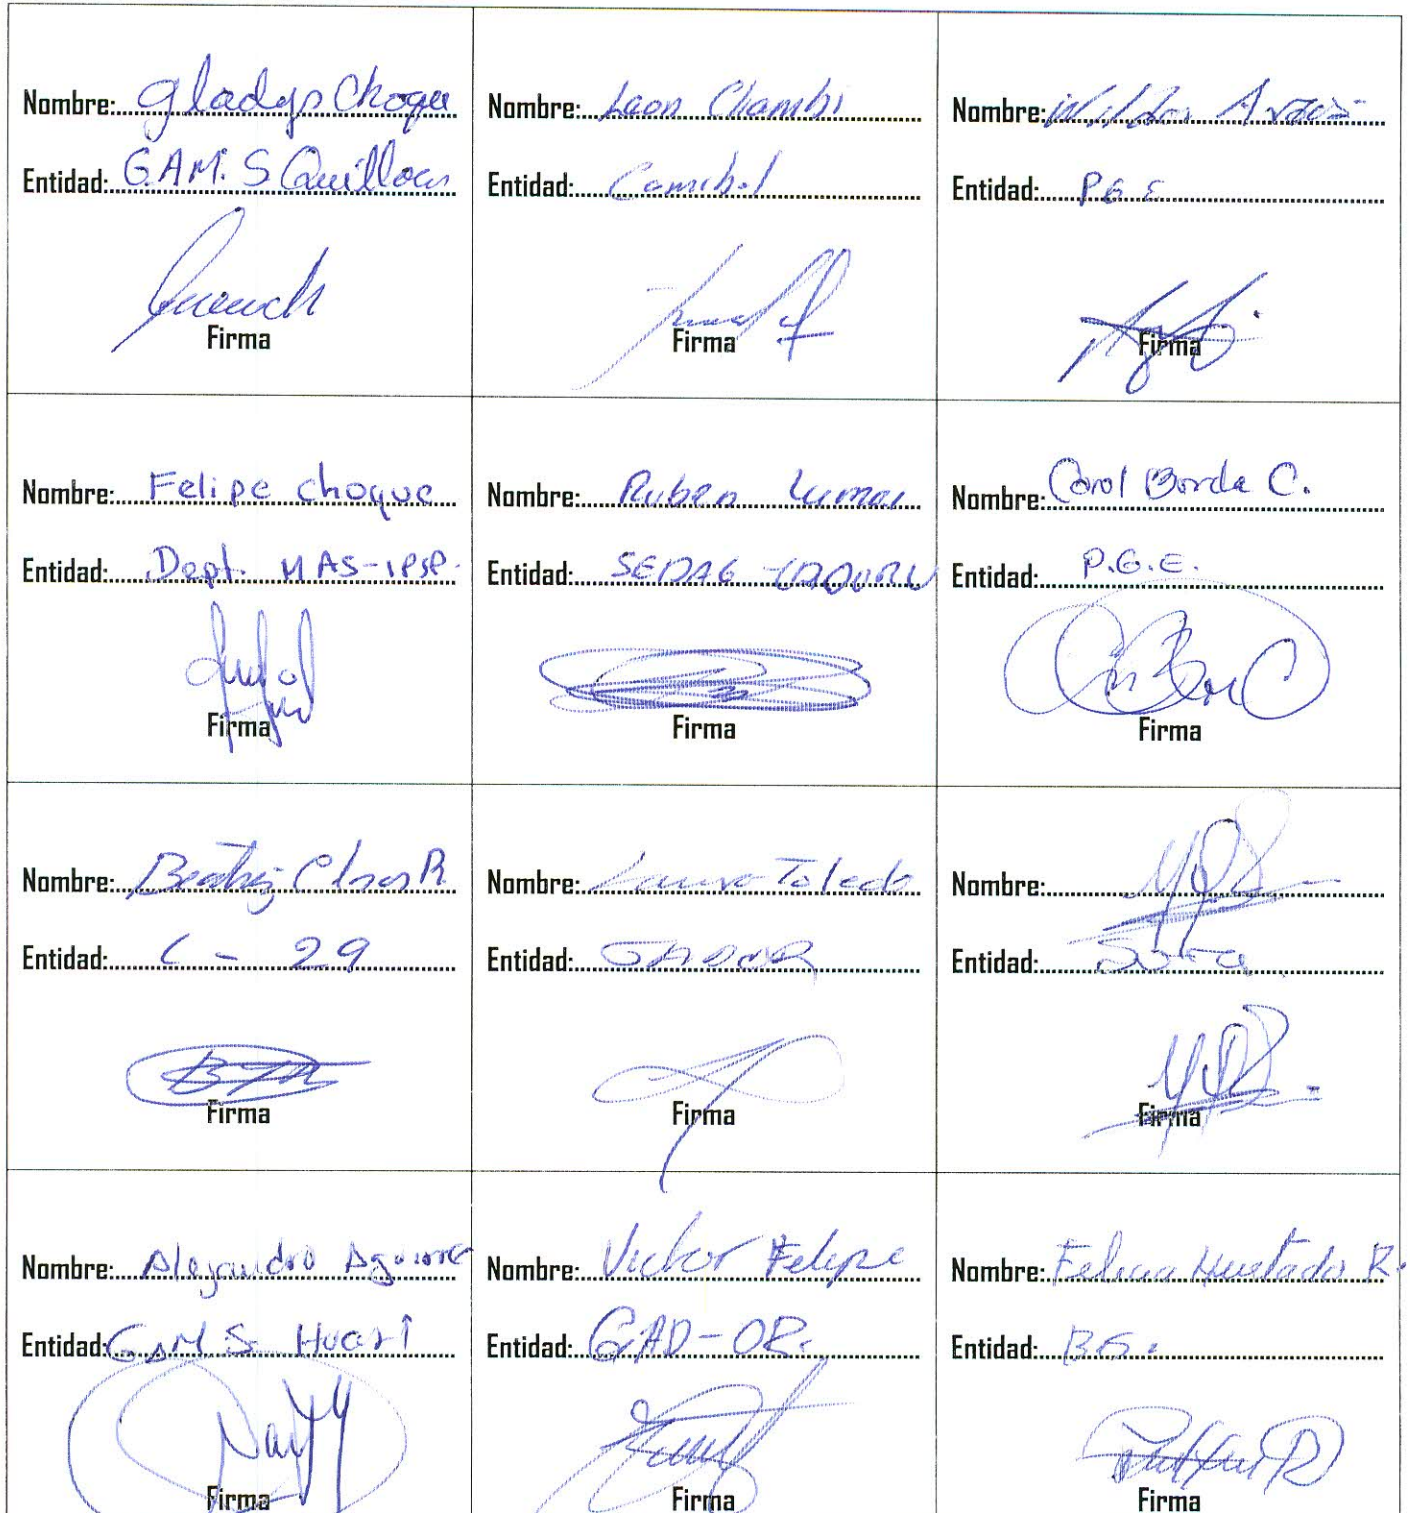 Nombre: Gladys Choque
Entidad: G.A.M. S. Quillacas
Firma
Nombre: Leon Chambi
Entidad: Comibol
Firma
Nombre:
Entidad: P.G.E
Firma
Nombre: Felipe choque
Entidad: Dept. MAS-IPSP.
Firma
Nombre: Ruben
Entidad: SEDAG
Firma
Nombre: Carol Borda C.
Entidad: P.G.E.
Firma
Nombre: Beatriz R.
Entidad: C - 29
Firma
Nombre: Lauro Toledo
Entidad: GADOR
Firma
Nombre:
Entidad:
Firma
Nombre: Alejandro Aguirre
Entidad: GAM S. Huari
Firma
Nombre: Victor Felipe
Entidad: GAD-OR.
Firma
Nombre: Felicia Hurtado R.
Entidad:
Firma